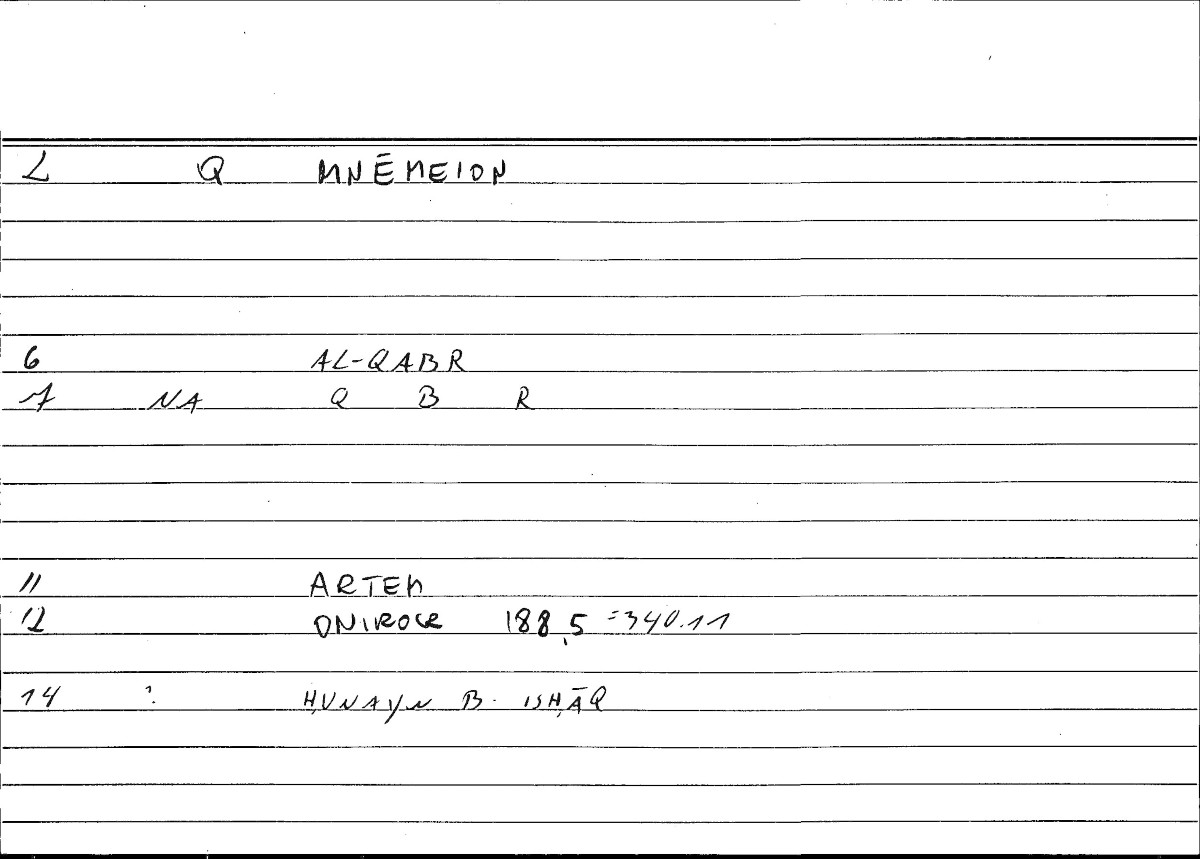 2 Q MNĒMEION
6 AL-QABR
7 NA Q B R
11 ARTEM
12 ONIROCR 188,5 =340.11
14 ? ḤUNAYN B. ISḤĀQ